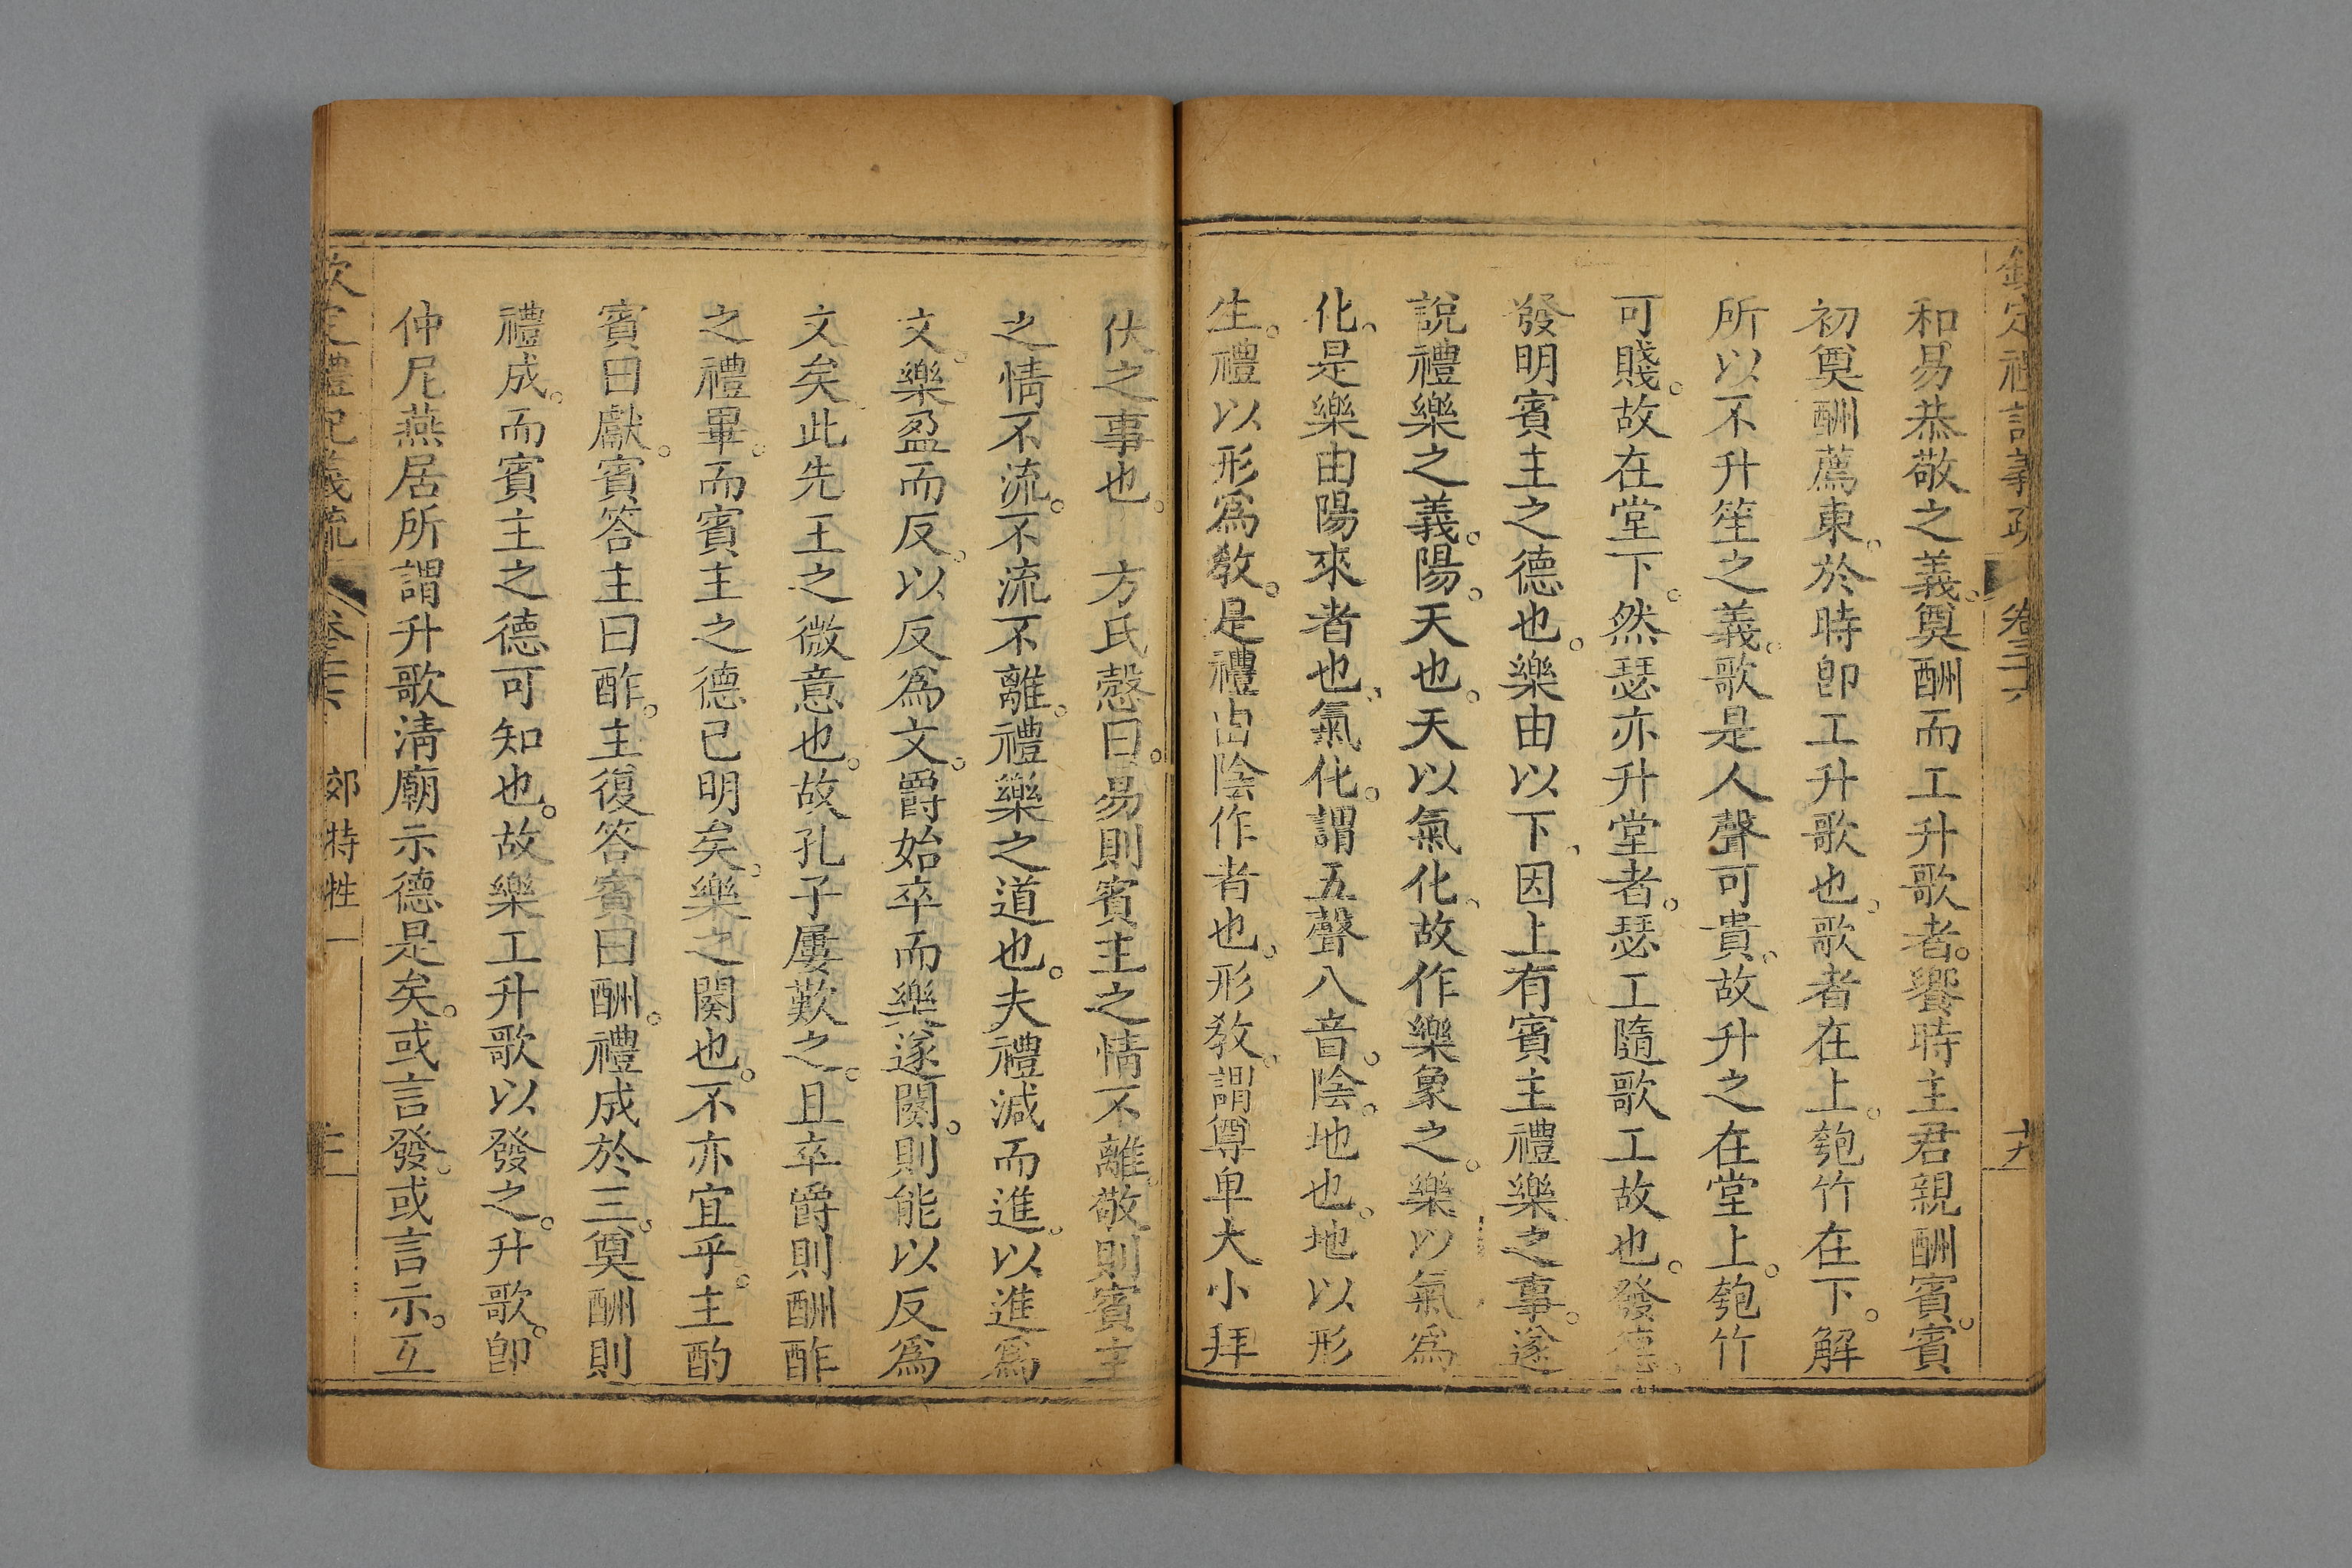 欽定禮記義疏 卷三十六 十九
和易恭敬之義。奠酬而工升歌者。饗時主君親酬賓。賓
初奠酬薦東。於時卽工升歌也。歌者在上。匏竹在下。解
所以不升笙之義。歌是人聲可貴。故升之在堂上。匏竹
可賤。故在堂下。然瑟亦升堂者。瑟工隨歌工故也。發德。
發明賓主之德也。樂由以下。因上有賓主禮樂之事。遂
說禮樂之義。陽。天也。天以氣化。故作樂象之。樂以氣爲
化。是樂由陽來者也。氣化。謂五聲八音。陰。地也。地以形
生。禮以形爲敎。是禮由陰作者也。形敎。謂尊卑大小拜
伏之事也。 方氏慤曰。易則賓主之情不離。敬則賓主
之情不流。不流不離。禮樂之道也。夫禮減而進。以進爲
文。樂盈而反。以反爲文。爵始卒而樂遂闋。則能以反爲
文矣。此先王之微意也。故孔子屢歎之。且卒爵則酬酢
之禮畢。而賓主之德已明矣。樂之闋也。不亦宜乎。主酌
賓曰獻。賓答主曰酢。主復答賓曰酬。禮成於三。奠酬則
禮成。而賓主之德可知也。故樂工升歌以發之。升歌。卽
仲尼燕居所謂升歌淸廟示德是矣。或言發。或言示。互
欽定禮記義疏 卷三十六 郊特牲一